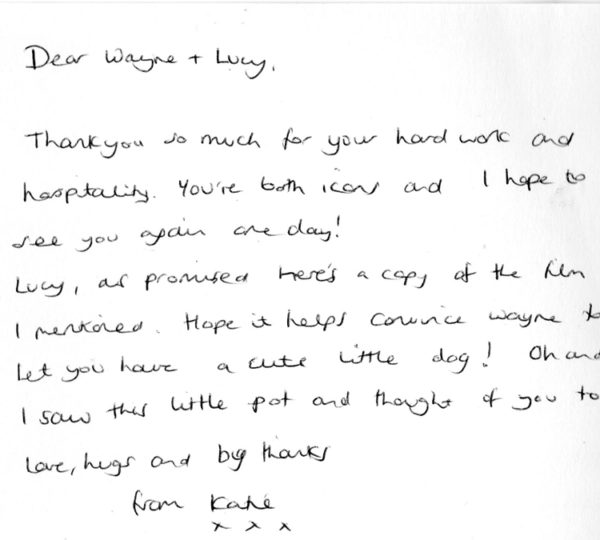 Dear Wayne + Lucy,
Thankyou so much for your hard work and
hosptality. You're both icons and I hope to
see you again one day!
Lucy, as promised here's a copy of the film
I mentioned. Hope it helps convince Wayne to
let you have a cute little dog! Oh and
I saw this little pot and thought of you to
Love, hugs and big thanks
from Katie
x x x